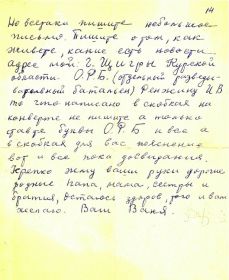 14
Но всетаки пишите небольшое
письмо. Пишите о том, как
живете, какие есть новости
адрес мой: г. Щигры Курской
области О.Р.Б. (отдельный разведы-
вательный баталъен) Денжищ И В
то что написано в скобках на
конверте не пишите а только
ставте буквы О Р Б и все а
в скобках для вас пояснение
вот и все пока досвидания.
Крепко жму ваши руки дорогие
родные папа, мама, сестры и
братия, остаюсь здоров, того и вам
желаю. Ваш Ваня.